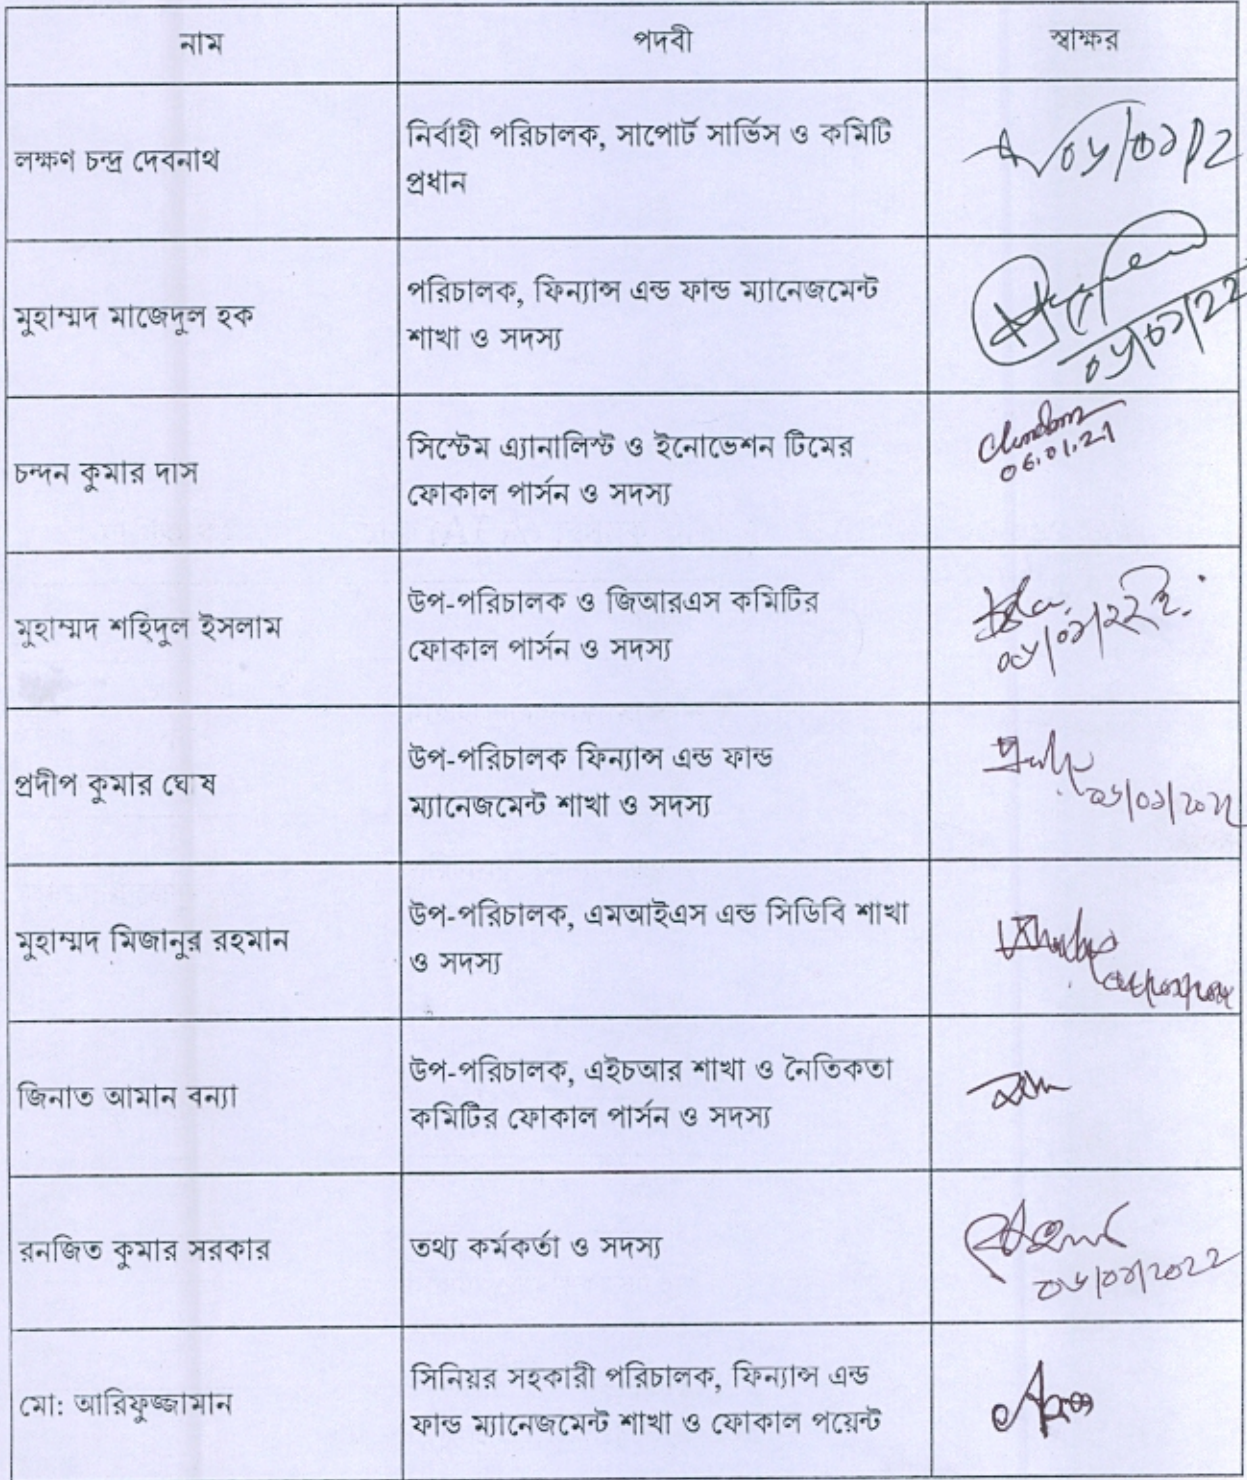 নাম পদবী স্বাক্ষর
লক্ষণ চন্দ্র দেবনাথ
নির্বাহী পরিচালক, সাপোর্ট সার্ভিস ও কমিটি
প্রধান
মুহাম্মদ মাজেদুল হক
পরিচালক, ফিন্যান্স এন্ড ফান্ড ম্যানেজমেন্ট
শাখা ও সদস্য
চন্দন কুমার দাস
সিস্টেম এ্যানালিস্ট ও ইনোভেশন টিমের
ফোকাল পার্সন ও সদস্য
06.01.21
মুহাম্মদ শহিদুল ইসলাম
উপ-পরিচালক ও জিআরএস কমিটির
ফোকাল পার্সন ও সদস্য
প্রদীপ কুমার ঘোষ
উপ-পরিচালক ফিন্যান্স এন্ড ফান্ড
ম্যানেজমেন্ট শাখা ও সদস্য
মুহাম্মদ মিজানুর রহমান
উপ-পরিচালক, এমআইএস এন্ড সিডিবি শাখা
ও সদস্য
জিনাত আমান বন্যা
উপ-পরিচালক, এইচআর শাখা ও নৈতিকতা
কমিটির ফোকাল পার্সন ও সদস্য
রনজিত কুমার সরকার
তথ্য কর্মকর্তা ও সদস্য
মো: আরিফুজ্জামান
সিনিয়র সহকারী পরিচালক, ফিন্যান্স এন্ড
ফান্ড ম্যানেজমেন্ট শাখা ও ফোকাল পয়েন্ট